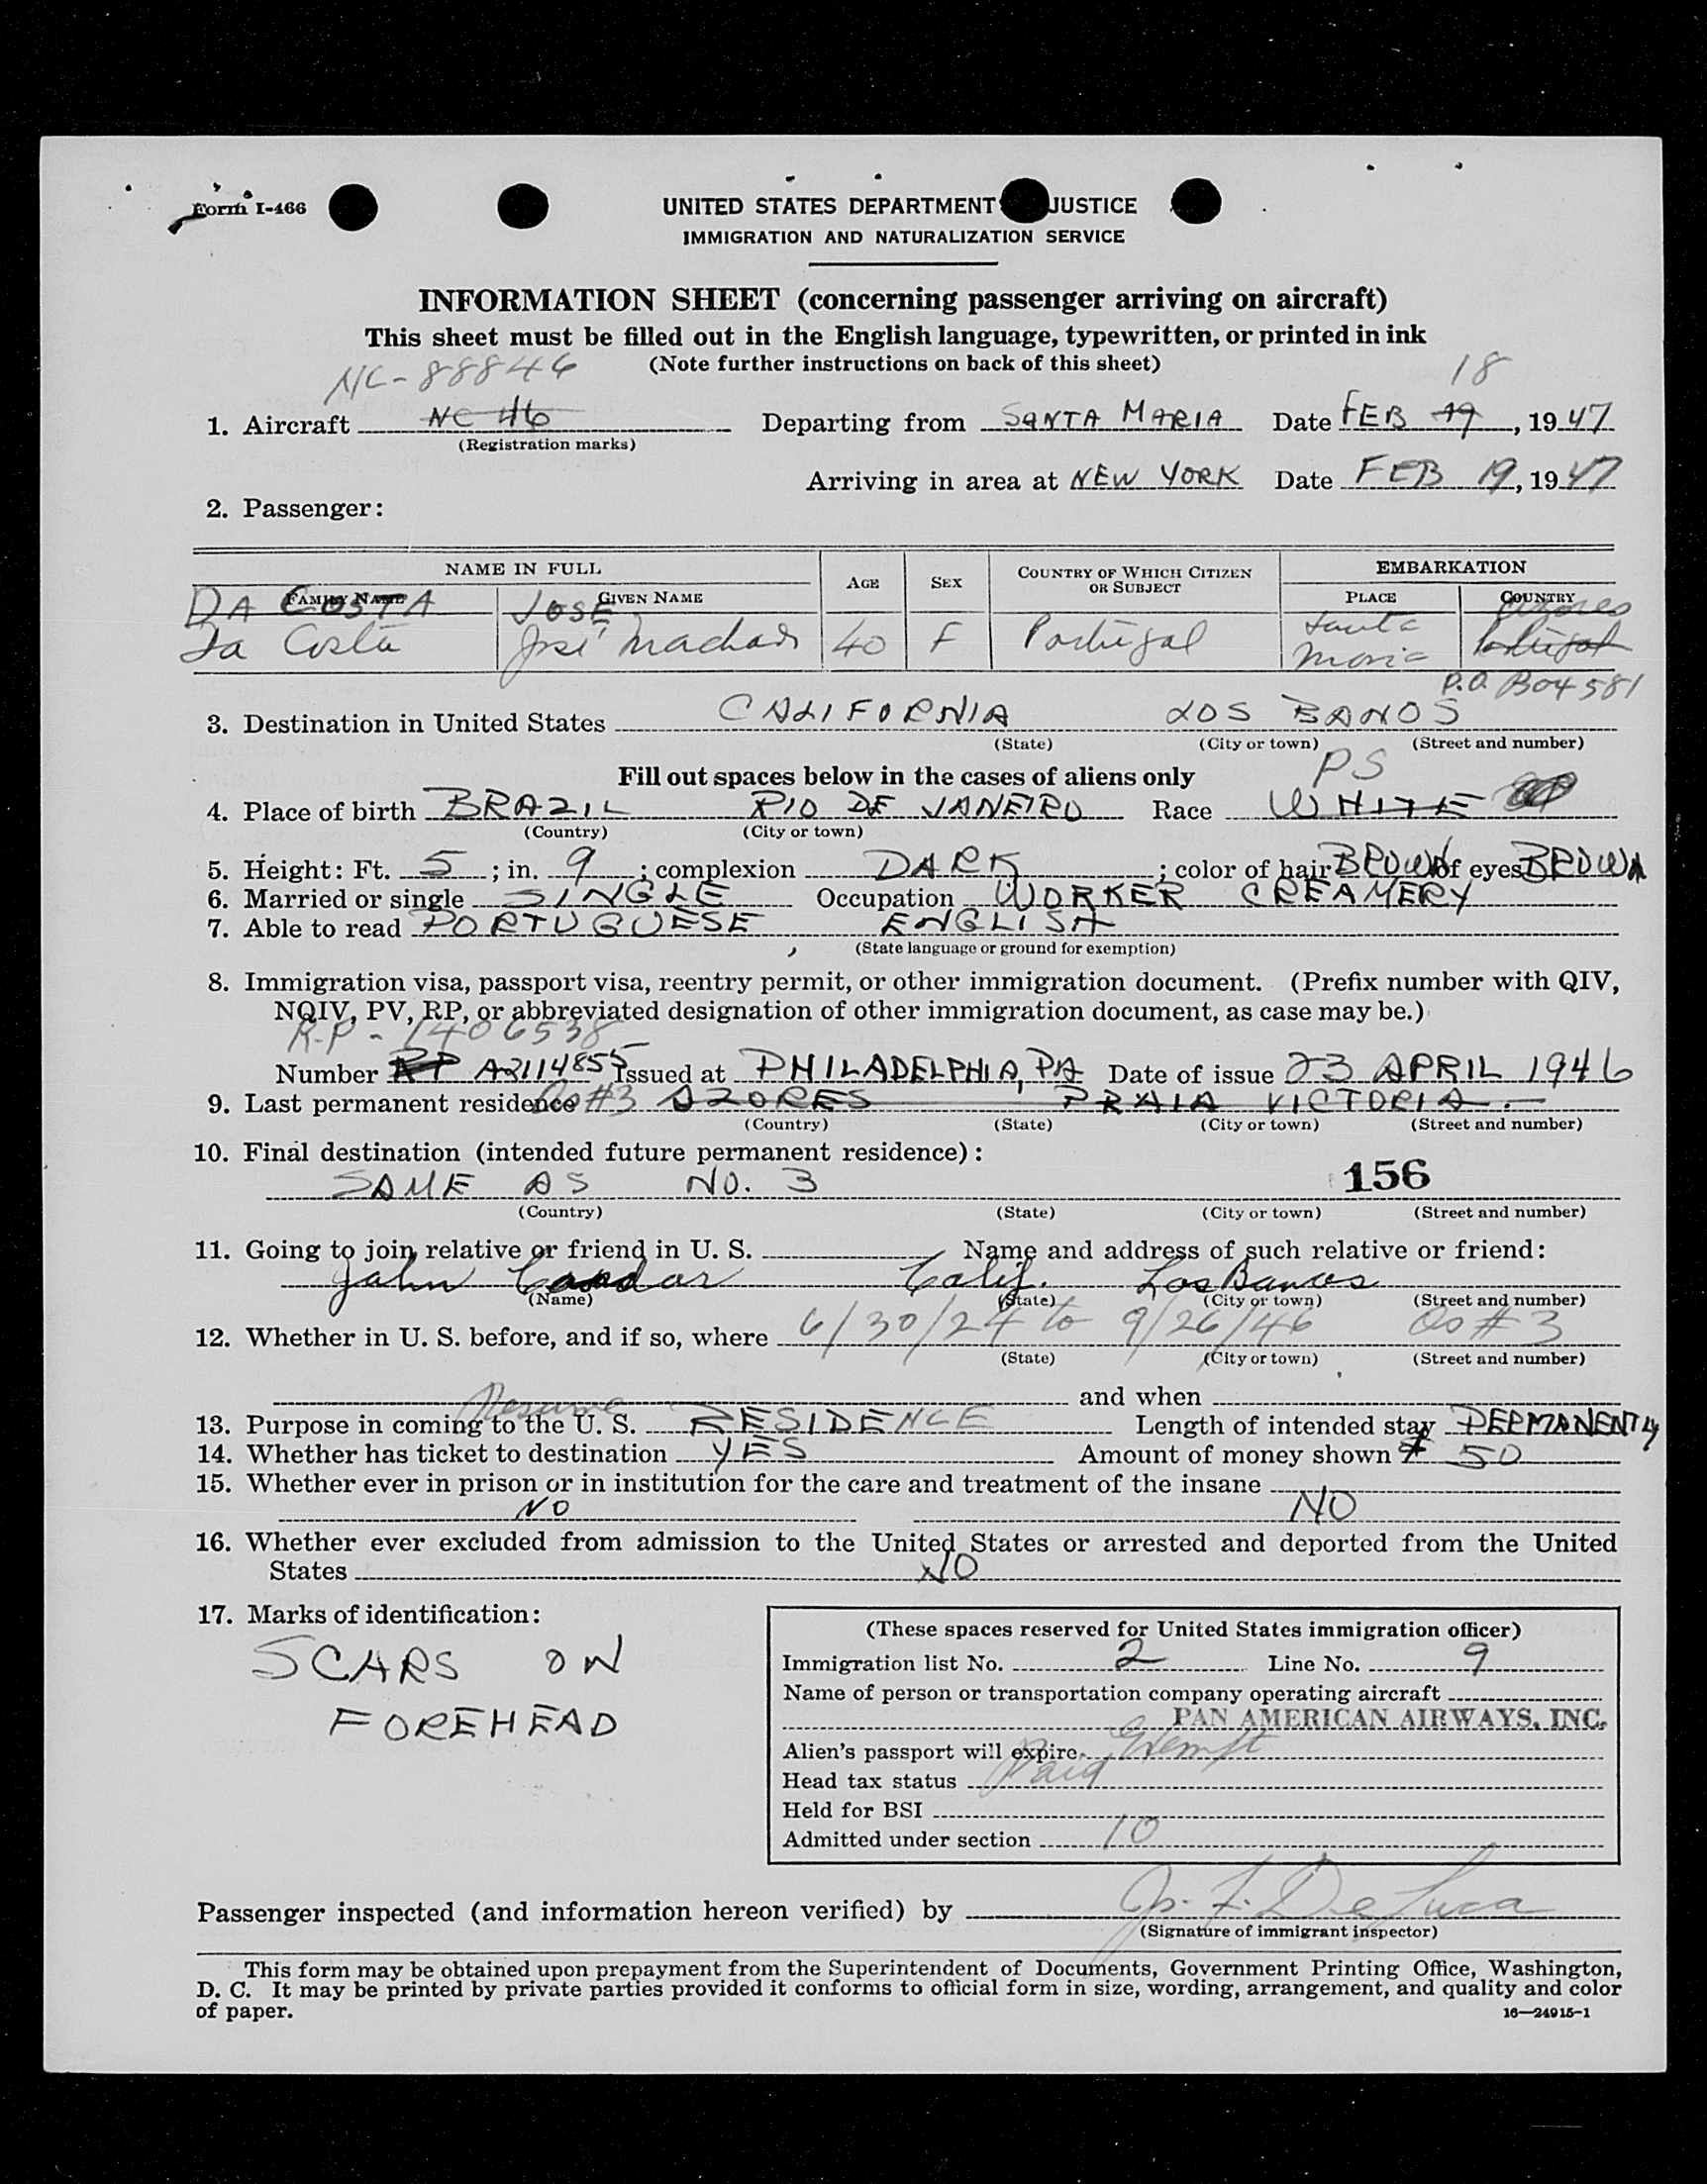 Form I-466
UNITED STATES DEPARTMENT JUSTICE
IMMIGRATION AND NATURALIZATION SERVICE
INFORMATION SHEET (concerning passenger arriving on aircraft)
This sheet must be filled out in the English language, typewritten, or printed in ink
(Note further instructions on back of this sheet)
NC-88846 18
1. Aircraft NC 46 Departing from SANTA MARIA Date FEB 19, 1947
(Registration marks)
Arriving in area at NEW YORK Date FEB 19, 1947
2. Passenger:
NAME IN FULL AGE SEX COUNTRY OF WHICH CITIZEN OR SUBJECT EMBARKATION
FAMILY NAME GIVEN NAME PLACE COUNTRY
DA COSTA JOSE Azores
Da Costa José Machado 40 F Portugal Santa Maria Portugal
P.O. Box 581
3. Destination in United States CALIFORNIA LOS BANOS
(State) (City or town) (Street and number)
Fill out spaces below in the cases of aliens only PS
4. Place of birth BRAZIL RIO DE JANEIRO Race WHITE
(Country) (City or town)
5. Height: Ft. 5; in. 9; complexion DARK; color of hair BROWN of eyes BROWN
6. Married or single SINGLE Occupation WORKER CREAMERY
7. Able to read PORTUGUESE, ENGLISH
(State language or ground for exemption)
8. Immigration visa, passport visa, reentry permit, or other immigration document. (Prefix number with QIV,
NQIV, PV, RP, or abbreviated designation of other immigration document, as case may be.)
R.P - 1406538
Number RP A3114855 Issued at PHILADELPHIA, PA Date of issue 23 APRIL 1946
9. Last permanent residence As #3 AZORES PRAIA VICTORIA.
(Country) (State) (City or town) (Street and number)
10. Final destination (intended future permanent residence):
SAME AS NO. 3 156
(Country) (State) (City or town) (Street and number)
11. Going to join relative or friend in U. S. Name and address of such relative or friend:
John Calif. Los Banos
(Name) (State) (City or town) (Street and number)
12. Whether in U. S. before, and if so, where 6/30/24 to 9/26/46 As #3
(State) (City or town) (Street and number)
and when
Resume
13. Purpose in coming to the U. S. RESIDENCE Length of intended stay PERMANENTLY
14. Whether has ticket to destination YES Amount of money shown $ 50
15. Whether ever in prison or in institution for the care and treatment of the insane
NO NO
16. Whether ever excluded from admission to the United States or arrested and deported from the United
States NO
17. Marks of identification:
SCARS ON
FOREHEAD
(These spaces reserved for United States immigration officer)
Immigration list No. 2 Line No. 9
Name of person or transportation company operating aircraft
PAN AMERICAN AIRWAYS, INC.
Alien's passport will expire Exempt
Head tax status Paid
Held for BSI
Admitted under section 10
Passenger inspected (and information hereon verified) by J. F. DeLuca
(Signature of immigrant inspector)
This form may be obtained upon prepayment from the Superintendent of Documents, Government Printing Office, Washington,
D. C. It may be printed by private parties provided it conforms to official form in size, wording, arrangement, and quality and color
of paper. 16—24915-1